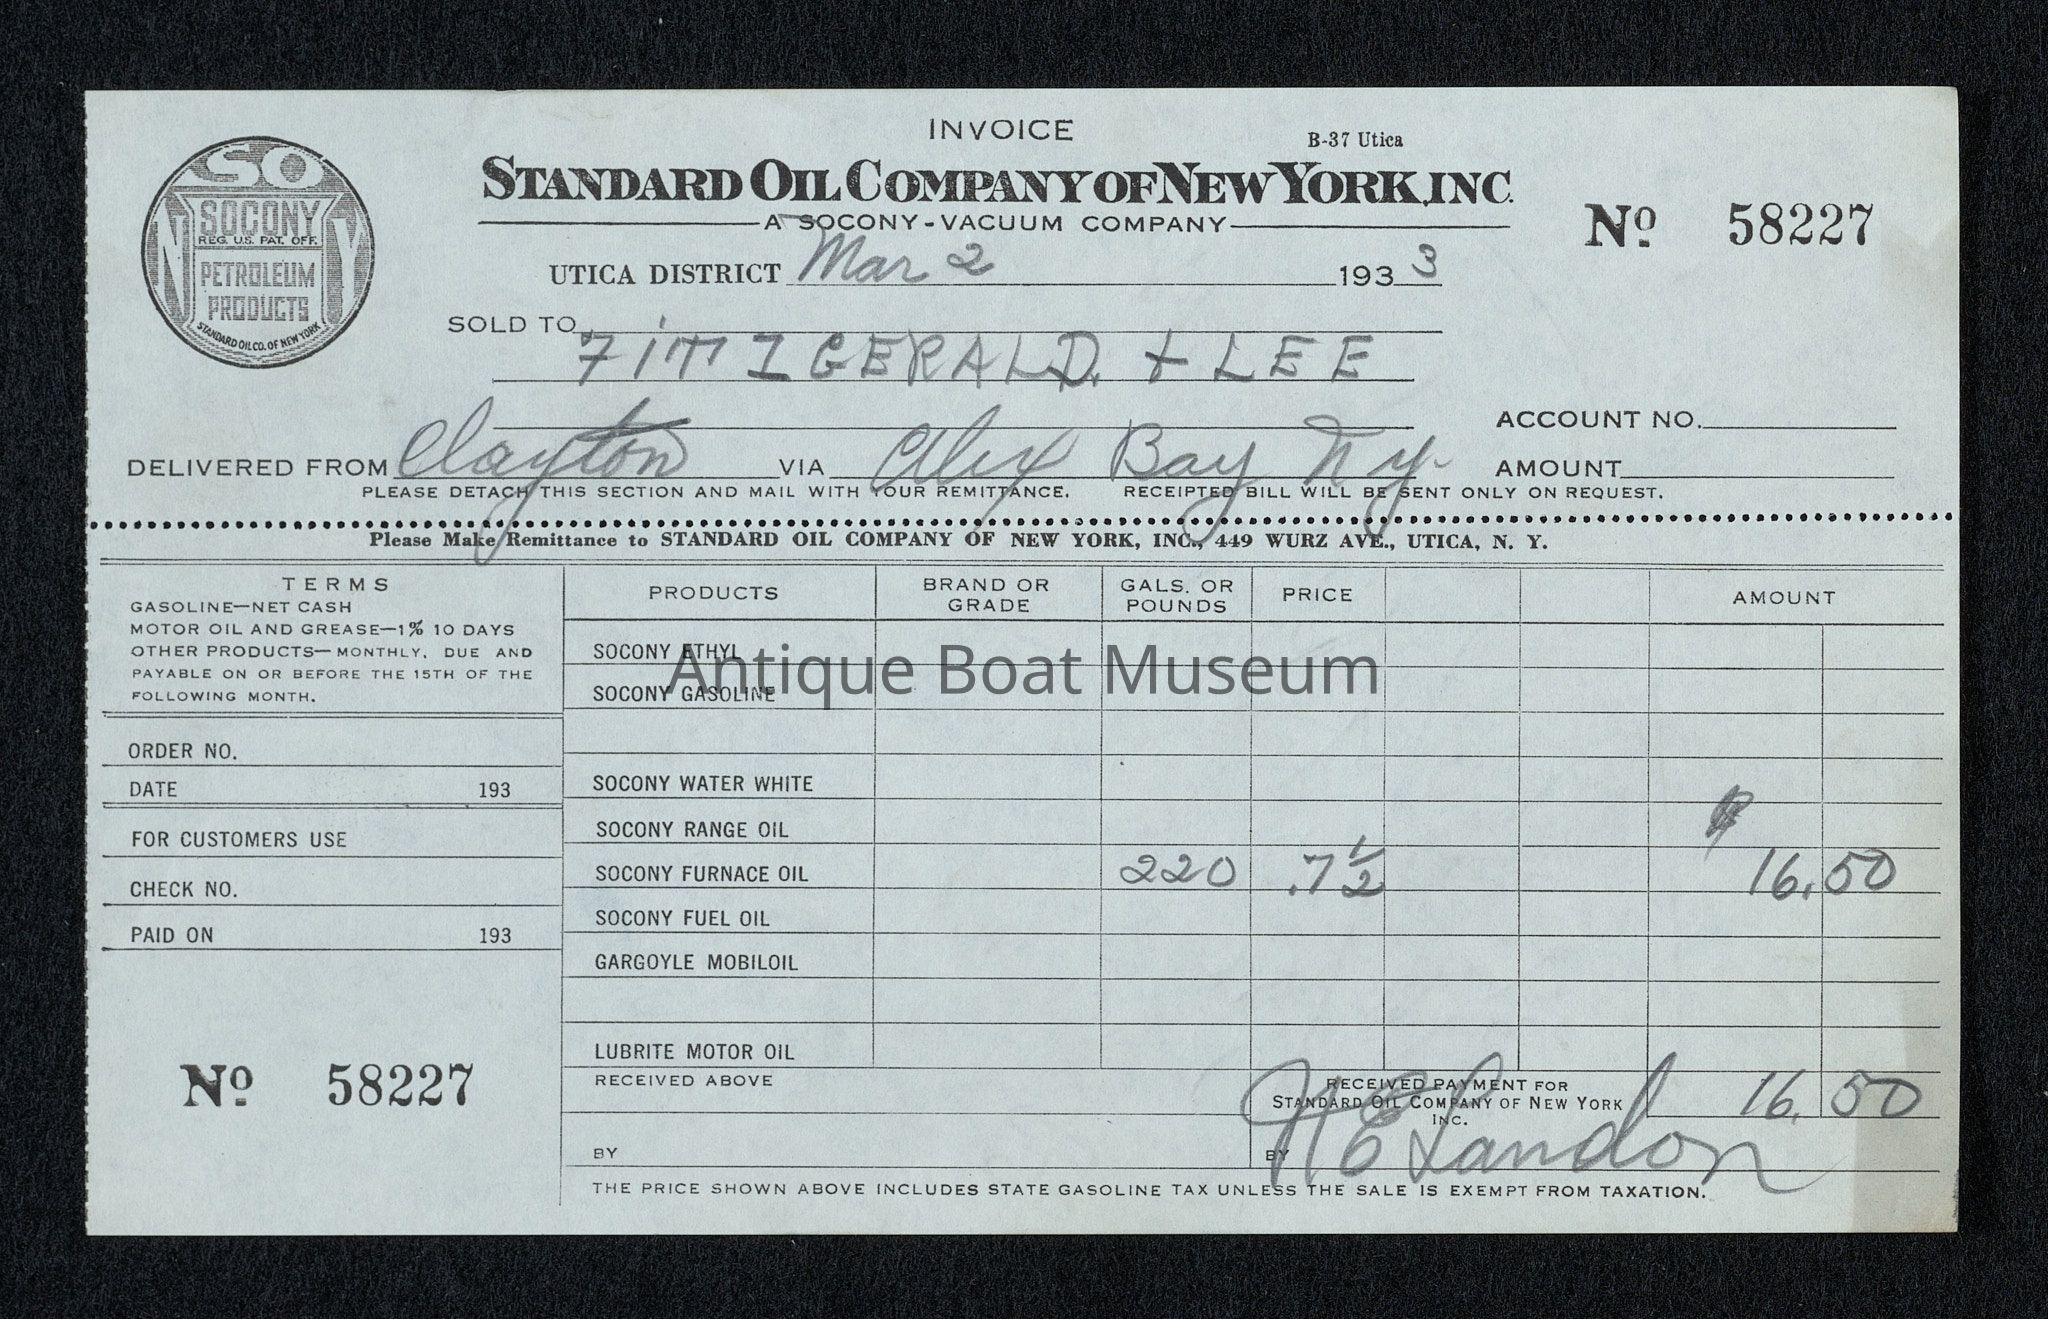 INVOICE
B-37 Utica
STANDARD OIL COMPANY OF NEW YORK, INC.
A SOCONY-VACUUM COMPANY
Nº 58227
SO
NY
SOCONY
REG. U.S. PAT. OFF.
PETROLEUM
PRODUCTS
STANDARD OIL CO. OF NEW YORK
UTICA DISTRICT Mar 2 1933
SOLD TO
FITZGERALD. + LEE
ACCOUNT NO.
DELIVERED FROM Clayton VIA Alex Bay N Y. AMOUNT
PLEASE DETACH THIS SECTION AND MAIL WITH YOUR REMITTANCE. RECEIPTED BILL WILL BE SENT ONLY ON REQUEST.
Please Make Remittance to STANDARD OIL COMPANY OF NEW YORK, INC., 449 WURZ AVE., UTICA, N. Y.
TERMS
GASOLINE—NET CASH
MOTOR OIL AND GREASE—1% 10 DAYS
OTHER PRODUCTS—MONTHLY, DUE AND
PAYABLE ON OR BEFORE THE 15TH OF THE
FOLLOWING MONTH.
ORDER NO.
DATE 193
FOR CUSTOMERS USE
CHECK NO.
PAID ON 193
Nº 58227
PRODUCTS BRAND OR GRADE GALS. OR POUNDS PRICE AMOUNT
SOCONY ETHYL
SOCONY GASOLINE
SOCONY WATER WHITE
SOCONY RANGE OIL
SOCONY FURNACE OIL 220 .7½ 16.50
SOCONY FUEL OIL
GARGOYLE MOBILOIL
LUBRITE MOTOR OIL
RECEIVED ABOVE
BY
RECEIVED PAYMENT FOR
STANDARD OIL COMPANY OF NEW YORK
INC.
16.50
BY H E Landon
THE PRICE SHOWN ABOVE INCLUDES STATE GASOLINE TAX UNLESS THE SALE IS EXEMPT FROM TAXATION.
Antique Boat Museum